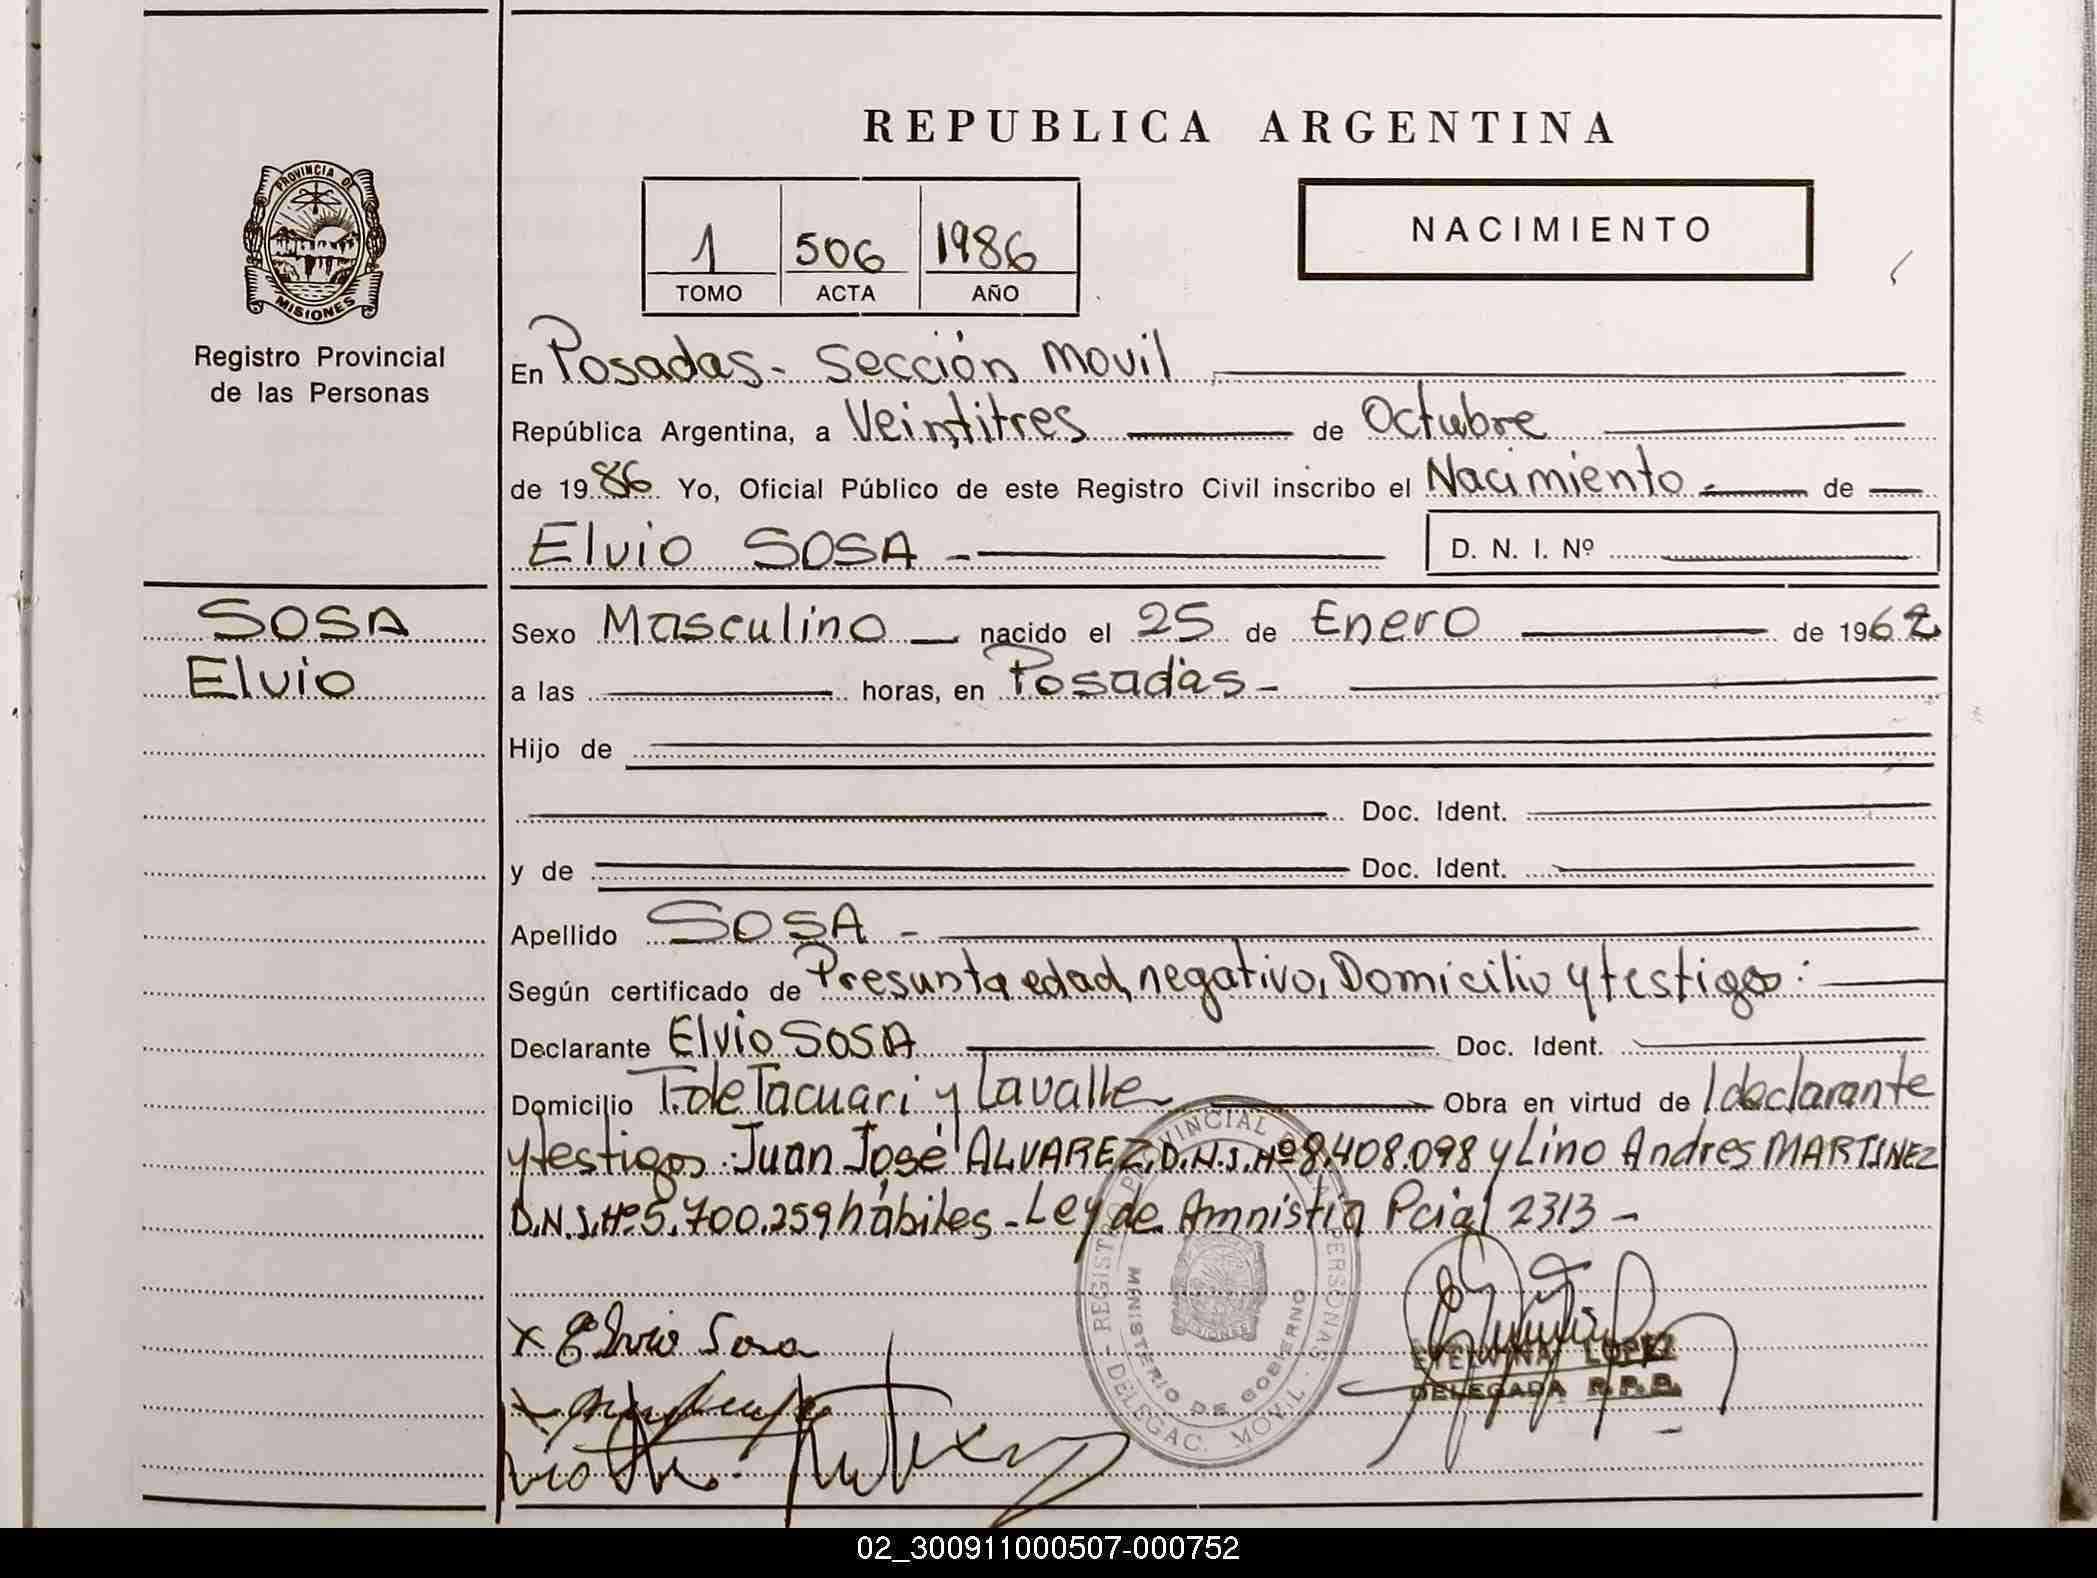 REPUBLICA ARGENTINA
PROVINCIA DE
MISIONES
Registro Provincial
de las Personas
1 506 1986
TOMO ACTA AÑO
NACIMIENTO
En Posadas - Sección Movil
República Argentina, a Veintitres de Octubre
de 1986 Yo, Oficial Público de este Registro Civil inscribo el Nacimiento de
Elvio SOSA - D. N. I. Nº
SOSA
Elvio
Sexo Masculino nacido el 25 de Enero de 1962
a las horas, en Posadas -
Hijo de
Doc. Ident.
y de Doc. Ident.
Apellido SOSA -
Según certificado de Presunta edad, negativo, Domicilio y testigos:
Declarante Elvio SOSA Doc. Ident.
Domicilio T. de Tacuari y Lavalle Obra en virtud de l declarante
y testigos: Juan José ALVAREZ, D.N.I. Nº 8.408.098 y Lino Andres MARTINEZ
D.N.I. Nº 5.700.259 hábiles - Ley de Amnistia Pcial 2313 -
REGISTRO PROVINCIAL DE LAS PERSONAS
MINISTERIO DE GOBIERNO
MISIONES
- DELEGAC. MOVIL -
x Elvio Sosa
ETELVINA LOPEZ
DELEGADA R.P.P.
02_300911000507-000752